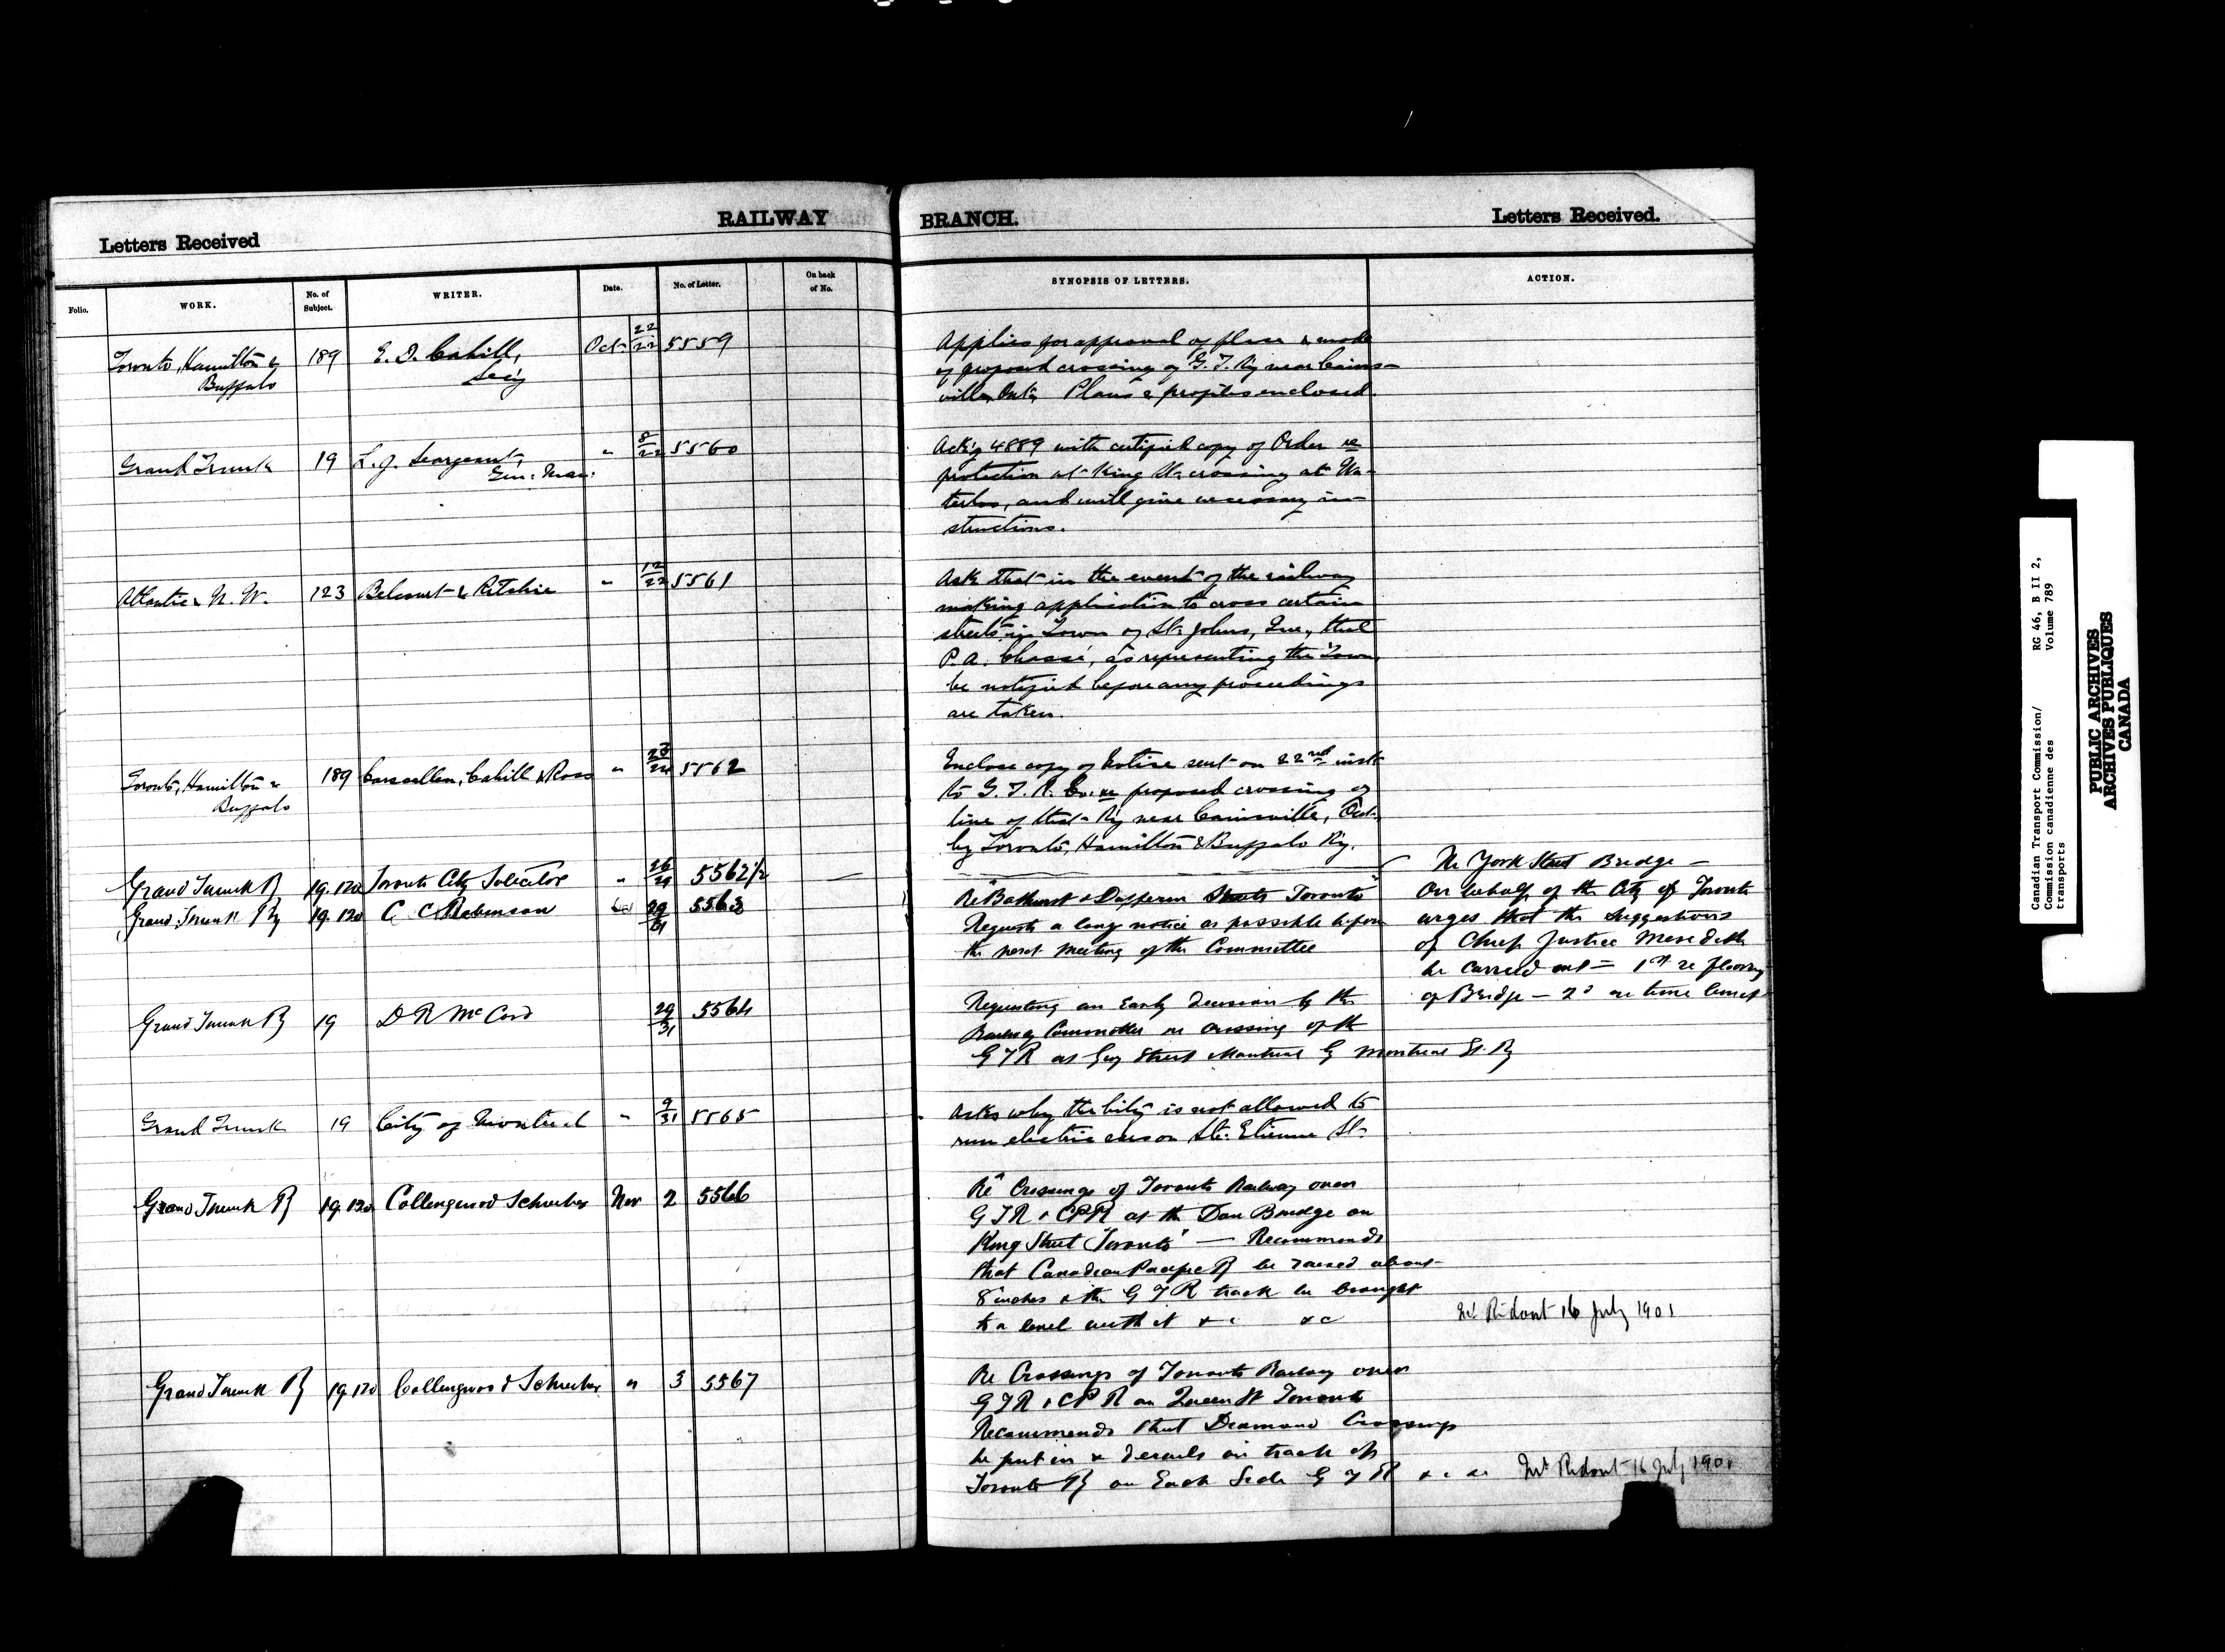 RAILWAY BRANCH.
Letters Received
Letters Received.
Folio. WORK. No. of Subject. WRITER. Date. No. of Letter. On back of No. SYNOPSIS OF LETTERS. ACTION.
Toronto, Hamilton & Buffalo 189 E. D. Cahill, Sec'y Oct. 22/22 5559
Applies for approval of place & mode
of proposed crossing of G. T. Ry near Cains-
ville, Ont. Plans & profiles enclosed.
Grand Trunk 19 L. J. Seargeant, Gen: Man: " 8/22 5560
Ack'g 4889 with certified copy of Order re
protection at King St. crossing at Wa-
terloo, and will give necessary in-
structions.
Atlantic & N. W. 123 Belcourt & Ritchie " 12/22 5561
Ask that in the event of the railway
making application to cross certain
streets in Town of St. Johns, Que., that
P. A. Chassé, as representing the Town,
be notified before any proceedings
are taken.
Toronto, Hamilton & Buffalo 189 Carscallen, Cahill & Ross " 23/24 5562
Enclose copy of Notice sent on 22nd inst
to G. T. R. Co. re proposed crossing of
line of that Ry near Cainsville, Ont.
by Toronto, Hamilton & Buffalo Ry.
Grand Trunk R 19.120 Toronto City Solicitor " 26/29 5562 1/2
Re York Street Bridge —
On behalf of the City of Toronto
urges that the suggestions
of Chief Justice Meredith
be carried out — 1st re flooring
of Bridge — 2d re time limit
Grand Trunk Ry 19.120 C C Robinson 29/31 5563
Re Bathurst & Dufferin Streets Toronto
Requests a long notice as possible before
the next meeting of the Committee
Grand Trunk Ry 19 D R McCord 29/31 5564
Requesting an early decision by the
Railway Committee re crossing of the
G T R at Guy Street Montreal by Montreal St. Ry
Grand Trunk 19 City of Montreal " 9/31 5565
Asks why the City is not allowed to
run electric cars on St. Etienne St.
Grand Trunk R 19.120 Collingwood Schreiber Nov 2 5566
Re Crossings of Toronto Railway over
G T R & CPR at the Don Bridge on
King Street Toronto — Recommends
that Canadian Pacific R be raised about
8 inches & the G T R track be brought
to a level with it &c &c
Mr Ridout 16 July 1901
Grand Trunk R 19.120 Collingwood Schreiber " 3 5567
Re Crossings of Toronto Railway over
G T R & CP R on Queen St Toronto
Recommends that Diamond Crossings
be put in & derails on track of
Toronto Ry on Each Side G T R &c &c
Mr Ridout 16 July 1901
Canadian Transport Commission/
Commission canadienne des
transports
RG 46, B II 2,
Volume 789
PUBLIC ARCHIVES
ARCHIVES PUBLIQUES
CANADA